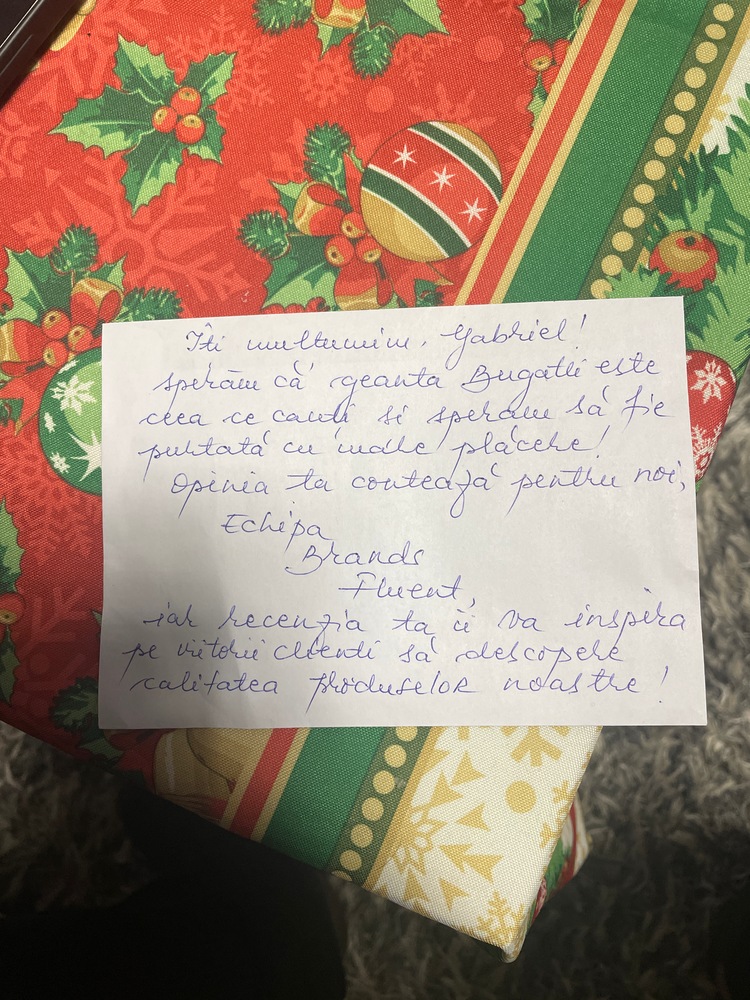 Îti multumim, Gabriel!
sperăm că geanta Bugatti este
ceea ce cauti si sperăm să fie
purtată cu mare plăcere!
Opinia ta contează pentru noi,
Echipa
Brands
Fluent,
iar recenzia ta îi va inspira
pe viitorii clienti să descopere
calitatea produselor noastre!